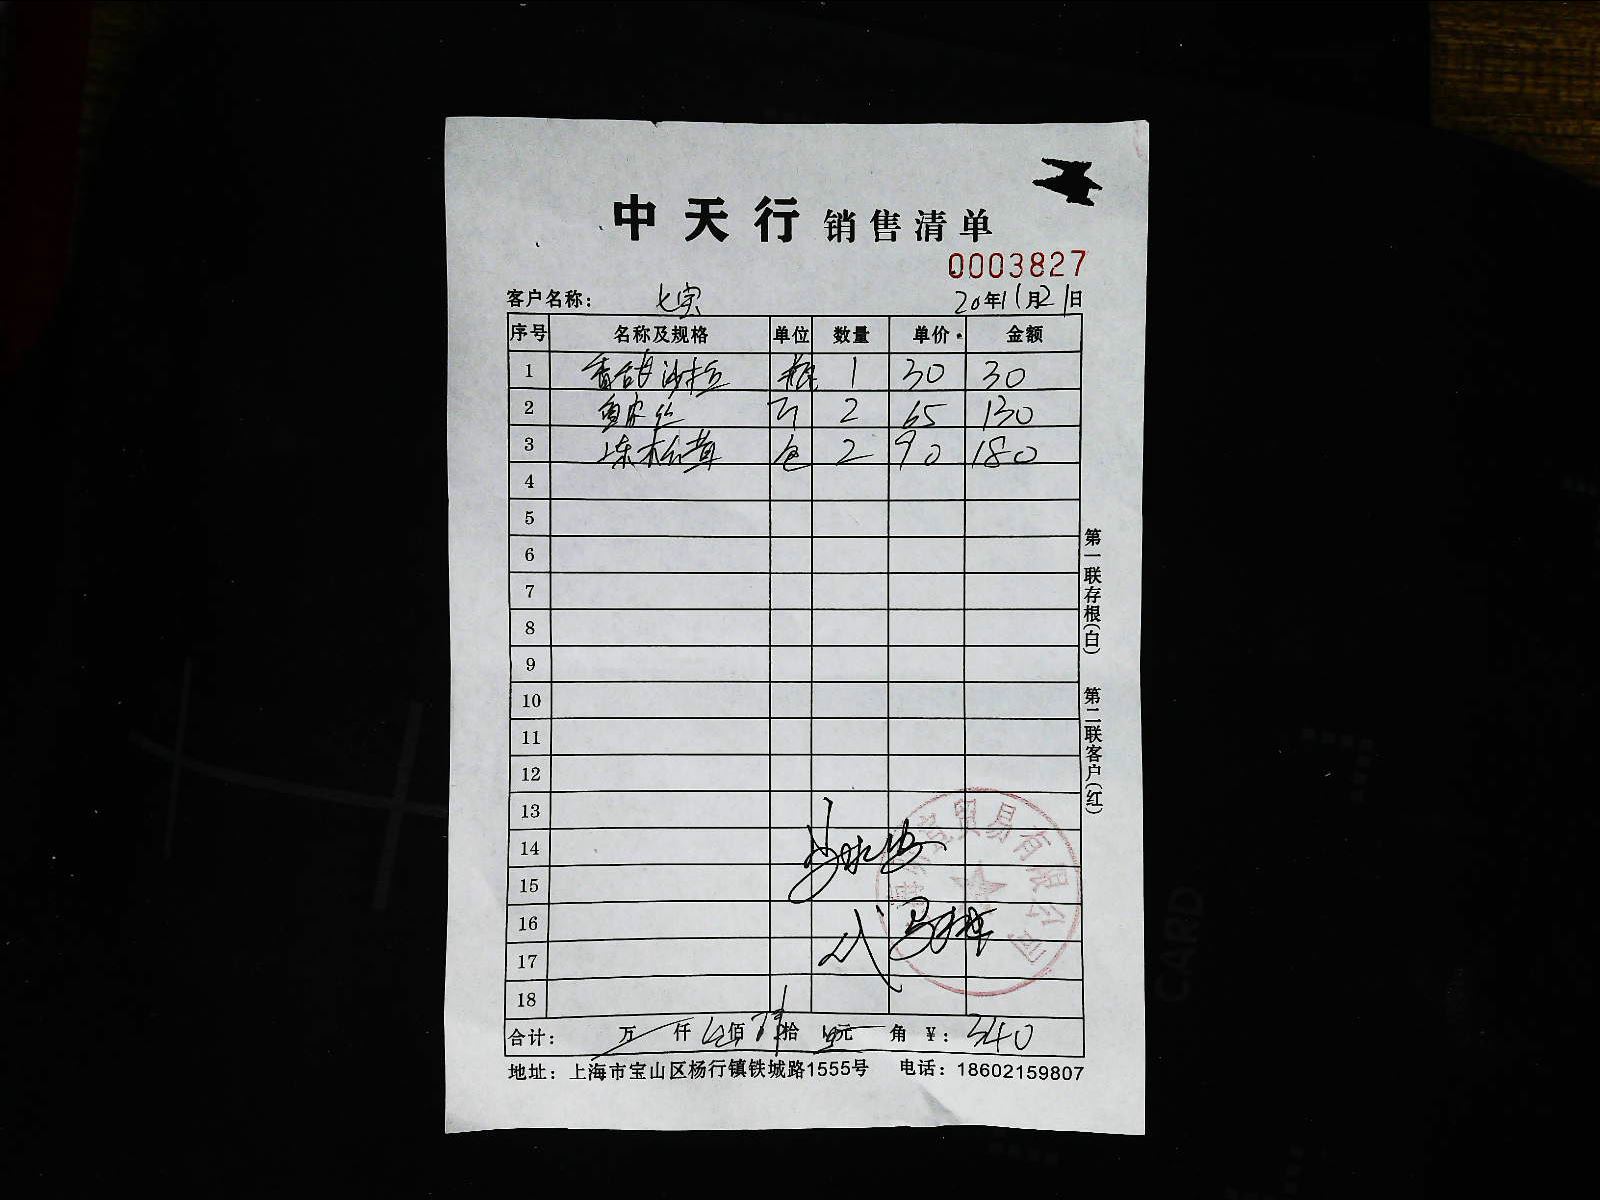 中天行 销售清单
0003827
客户名称： 七宝 20年11月21日
序号 名称及规格 单位 数量 单价 金额
1 香甜沙拉 瓶 1 30 30
2 鱼皮丝 斤 2 65 130
3 冻松茸 包 2 90 180
4
5
6
7
8
9
10
11
12
13
14
15
16
17
18
贸易有限公司
代
合计： 万 仟 佰 拾 元 角 ¥：340
地址：上海市宝山区杨行镇铁城路1555号 电话：18602159807
第一联存根(白) 第二联客户(红)
CARD